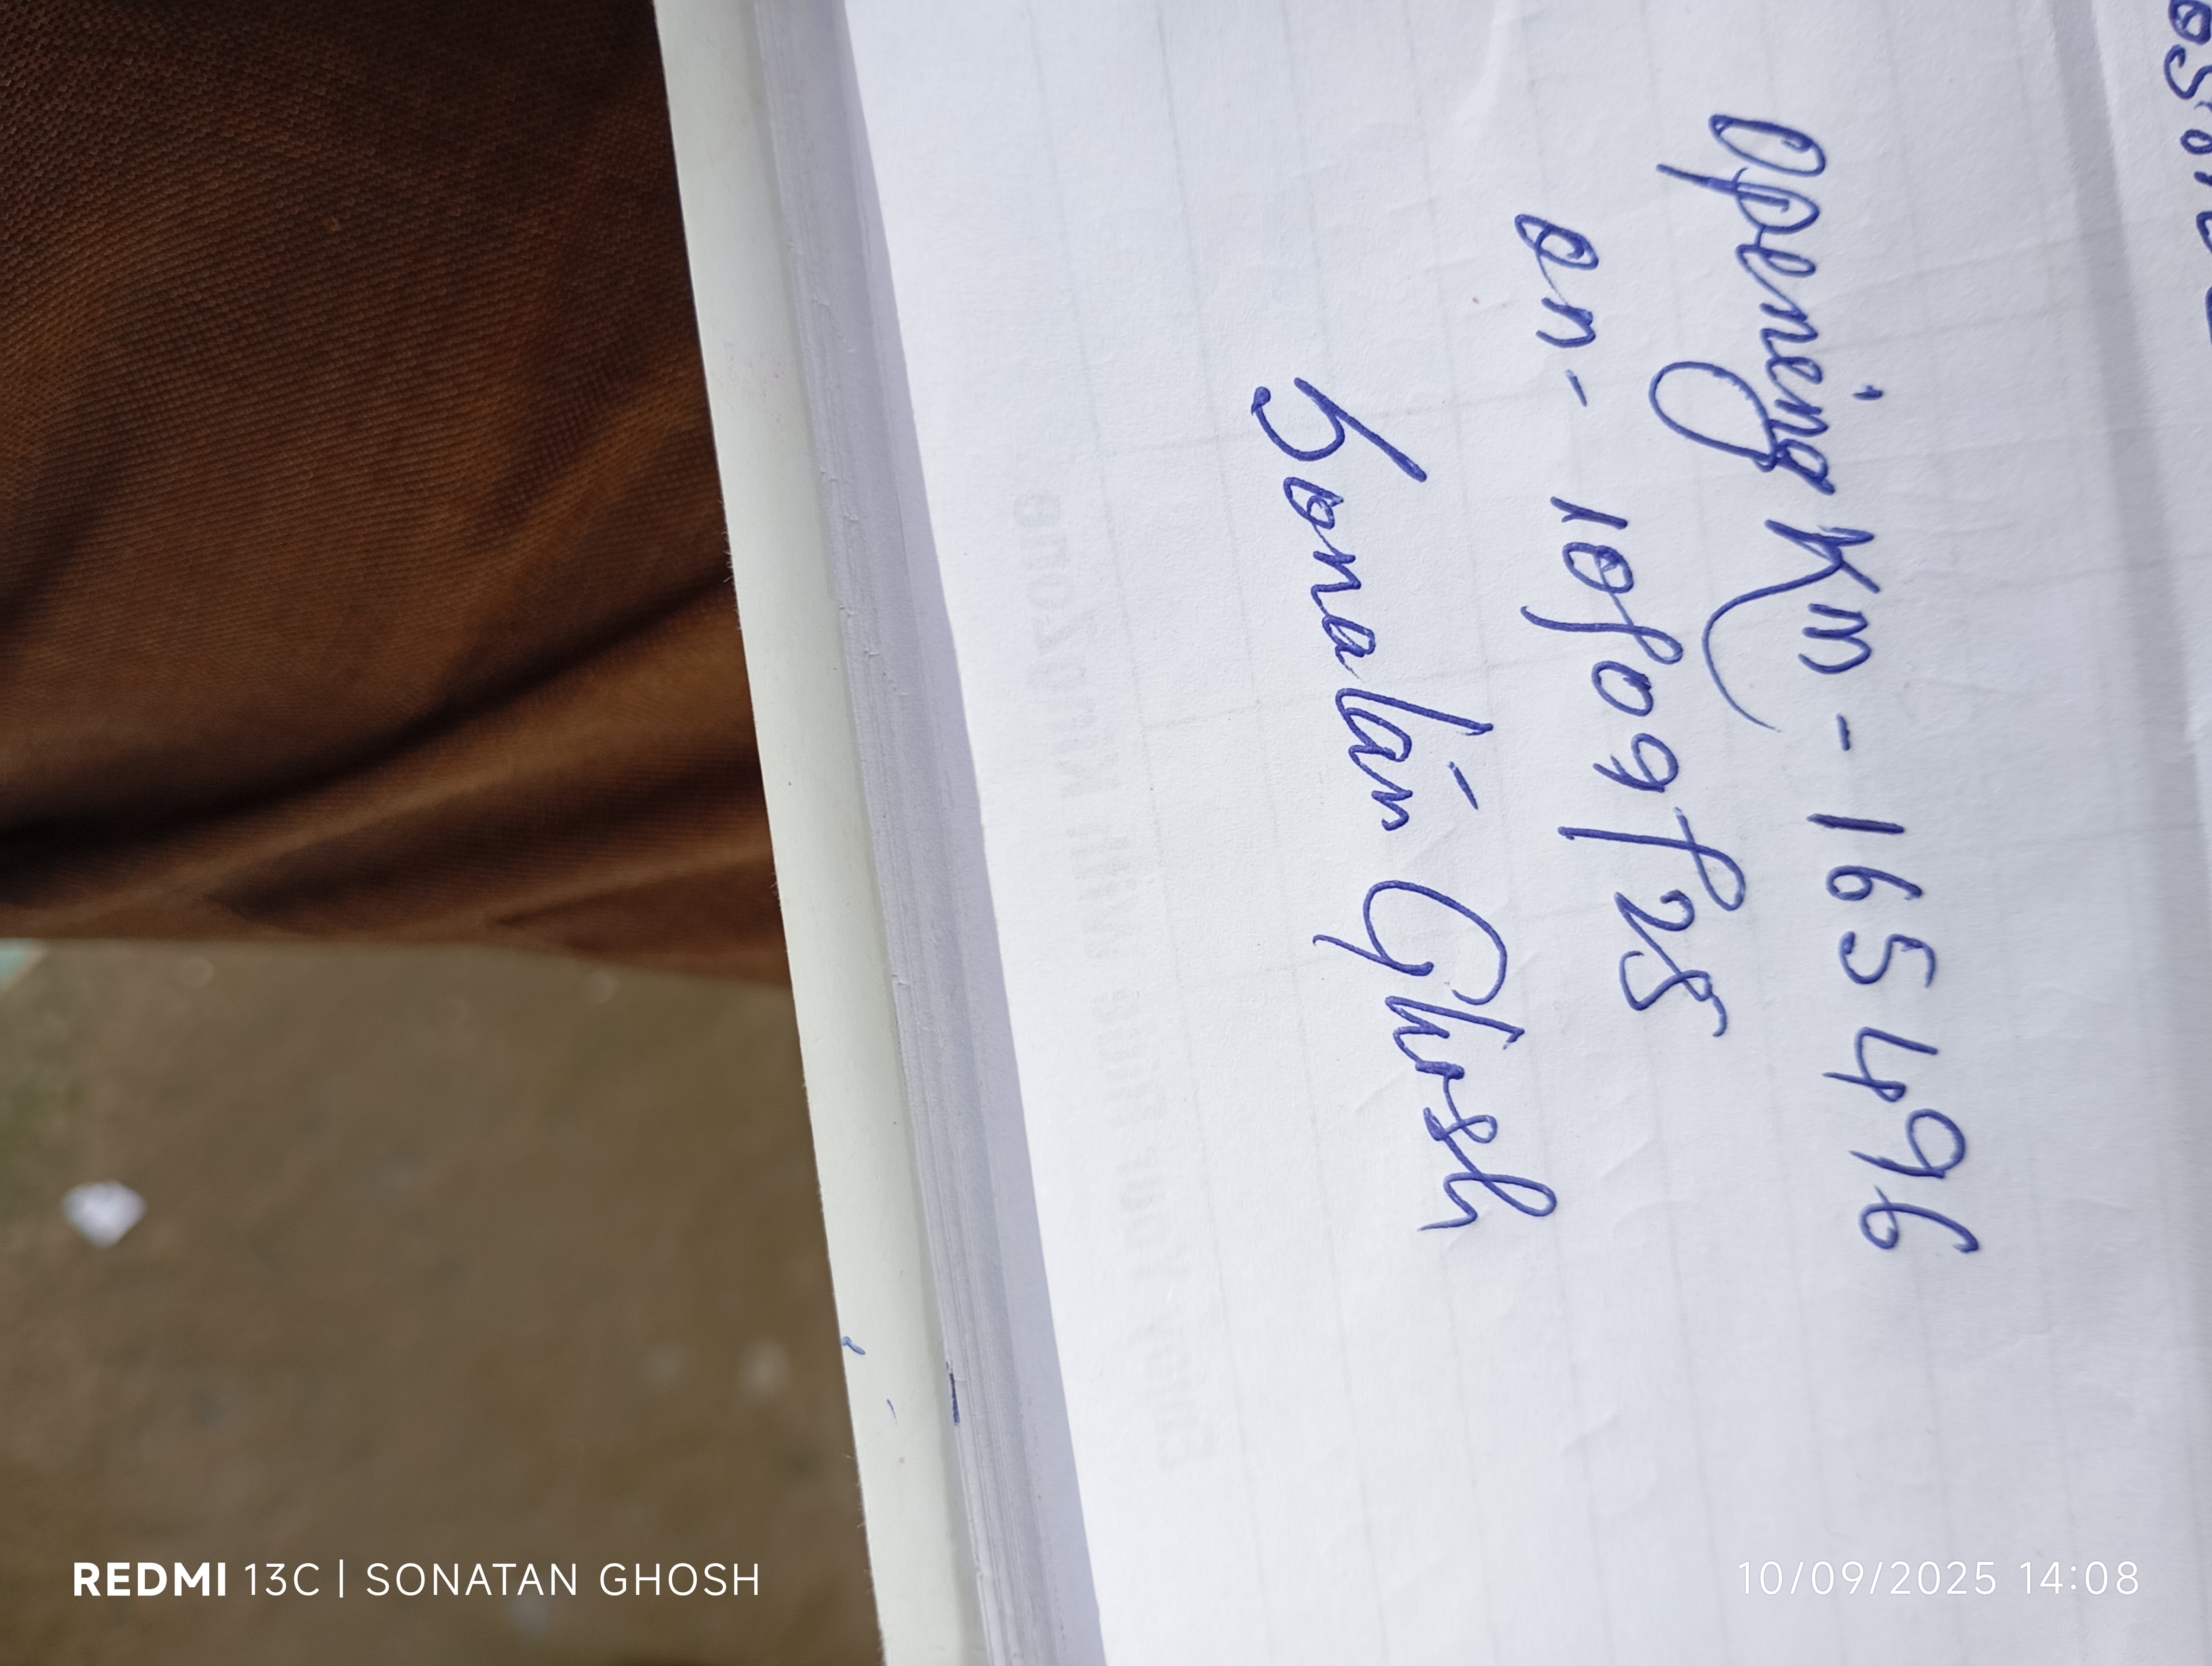 Opening Km - 165496
on - 10/09/25
Sonatan Ghosh
REDMI 13C | SONATAN GHOSH
10/09/2025 14:08